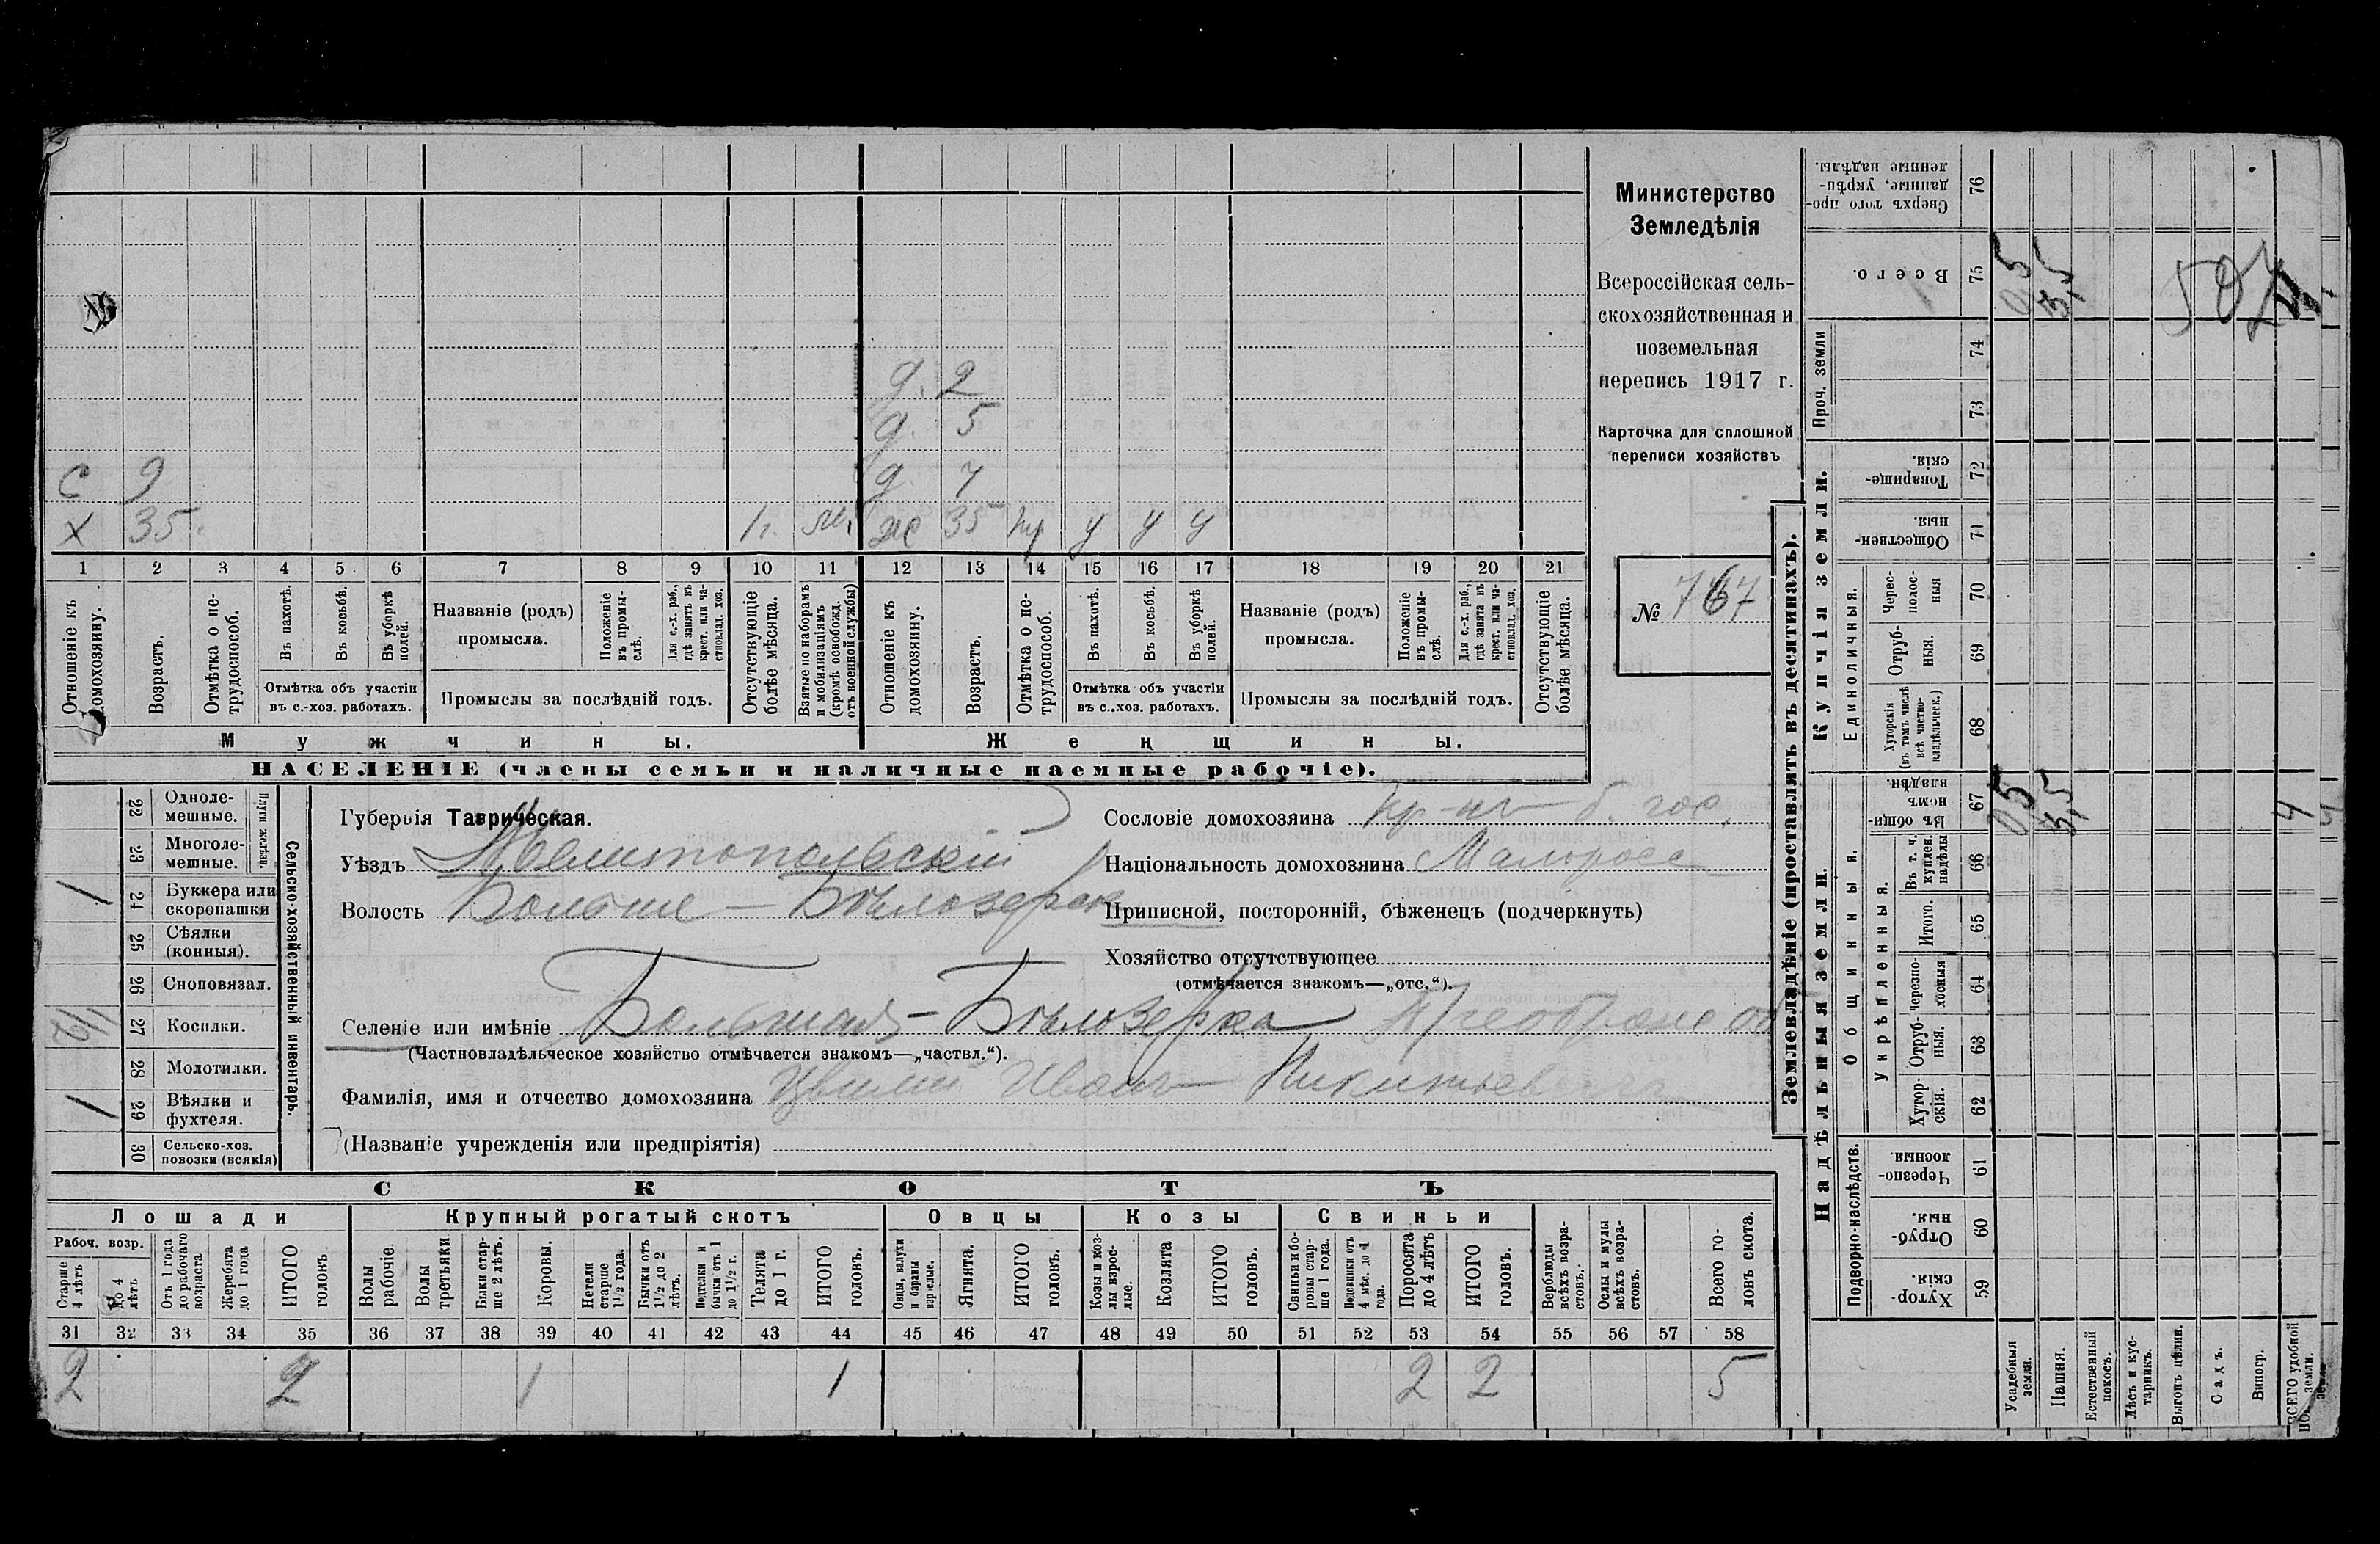 д. 2
д. 5
с 9 д 7
х 35. 1г. м. ж 35 нр у у у
1 2 3 4 5 6 7 8 9 10 11 12 13 14 15 16 17 18 19 20 21
Отношеніе къ домохозяину.
Возрастъ.
Отмѣтка о не-трудоспособ.
Въ пахотѣ.
Въ косьбѣ.
Въ уборкѣ полей.
Отмѣтка объ участіи
въ с.-хоз. работахъ.
Названіе (родъ)
промысла.
Положеніе въ промы-слѣ.
Для с.-х. раб., гдѣ занятъ въ крест. или ча-стновлад. хоз.
Промыслы за послѣдній годъ.
Отсутствующіе болѣе мѣсяца.
Взятые по наборамъ и мобилизаціямъ (кромѣ освобожд. отъ военной службы)
Отношеніе къ домохозяину.
Возрастъ.
Отмѣтка о не-трудоспособ.
Въ пахотѣ.
Въ косьбѣ.
Въ уборкѣ полей.
Отмѣтка объ участіи
въ с.-хоз. работахъ.
Названіе (родъ)
промысла.
Положеніе въ промы-слѣ.
Для с.-х. раб., гдѣ занятъ въ крест. или ча-стновлад. хоз.
Промыслы за послѣдній годъ.
Отсутствующіе болѣе мѣсяца.
Мужчины. Женщины.
НАСЕЛЕНІЕ (члены семьи и наличные наемные рабочіе).
Министерство
Земледѣлія
Всероссійская сель-
скохозяйственная и
поземельная
перепись 1917 г.
Карточка для сплошной
переписи хозяйствъ
№ 767
Сельско-хозяйственный инвентарь.
Плуги желѣзн.
22 Одноле-
мешные.
23 Многоле-
мешные.
1 24 Буккера или
скоропашки
25 Сѣялки
(конныя).
26 Сноповязал.
1/2 27 Косилки.
28 Молотилки.
1 29 Вѣялки и
фухтеля.
30 Сельско-хоз.
повозки (всякія)
Губернія Таврическая.
Уѣздъ Мелитопольскій
Волость Больше-Бѣлозерск
Селеніе или имѣніе Большая-Бѣлозерка
(Частновладѣльческое хозяйство отмѣчается знакомъ—„частвл.“).
Фамилія, имя и отчество домохозяина Цвилій Иванъ Никитьевичъ
(Названіе учрежденія или предпріятія)
Сословіе домохозяина кр-нъ б. гос.
Національность домохозяина Малоросс
Приписной, посторонній, бѣженецъ (подчеркнуть)
Хозяйство отсутствующее
(отмѣчается знакомъ—„отс.“).
СКОТЪ
Лошади Крупный рогатый скотъ Овцы Козы Свиньи
Рабоч. возр.
Старше 4 лѣтъ
до 4 лѣтъ
Отъ 1 года до рабочаго возраста
Жеребята до 1 года
ИТОГО головъ.
Волы рабочіе.
Волы третьяки
Быки стар-ше 2 лѣтъ.
Коровы.
Нетели старше 1 1/2 года.
Бычки отъ 1 1/2 до 2 лѣтъ.
Подтелки и бычки отъ 1 до 1 1/2 г.
Телята до 1 г.
ИТОГО головъ.
Овцы, валухи и бараны взрослые.
Ягнята.
ИТОГО головъ.
Козы и коз-лы взрос-лые.
Козлята
ИТОГО головъ.
Свиньи и бо-ровы стар-ше 1 года.
Подсвинки отъ 4 мѣс. до 1 года.
Поросята до 4 лѣтъ
ИТОГО головъ.
Верблюды всѣхъ возра-стовъ.
Ослы и мулы всѣхъ возра-стовъ.
Всего го-ловъ скота.
31 32 33 34 35 36 37 38 39 40 41 42 43 44 45 46 47 48 49 50 51 52 53 54 55 56 57 58
2 2 1 1 2 2 5
Землевладѣніе (проставлять въ десятинахъ).
Надѣльныя земли.
Купчія земли.
Проч. земли
Подворно-наслѣдств.
Общинныя.
Укрѣпленныя.
Единоличныя.
Сверхъ того про-данные, укрѣп-ленные надѣлы. 76
Всего. 75 0,5 3,5 4
74
73
Товарище-скія. 72
Обществен-ныя. 71
Черес-полос-ныя 70
Отруб-ныя. 69
Хуторскія (въ томъ числѣ всѣ частно-владѣльческ.) 68
Въ общин-номъ владѣн. 67 0,5 3,5 4
Въ т. ч. куплен. надѣлы 66
Итого. 65
Черезпо-лосныя 64
Отруб-ныя. 63
Хутор-скія. 62
Черезпо-лосныя. 61
Отруб-ныя. 60
Хутор-скія. 59
Усадебныя земли.
Пашня.
Естественный покосъ.
Лѣсъ и кус-тарникъ.
Выгонъ цѣлин.
Садъ.
Виногр.
ВСЕГО удобной земли.